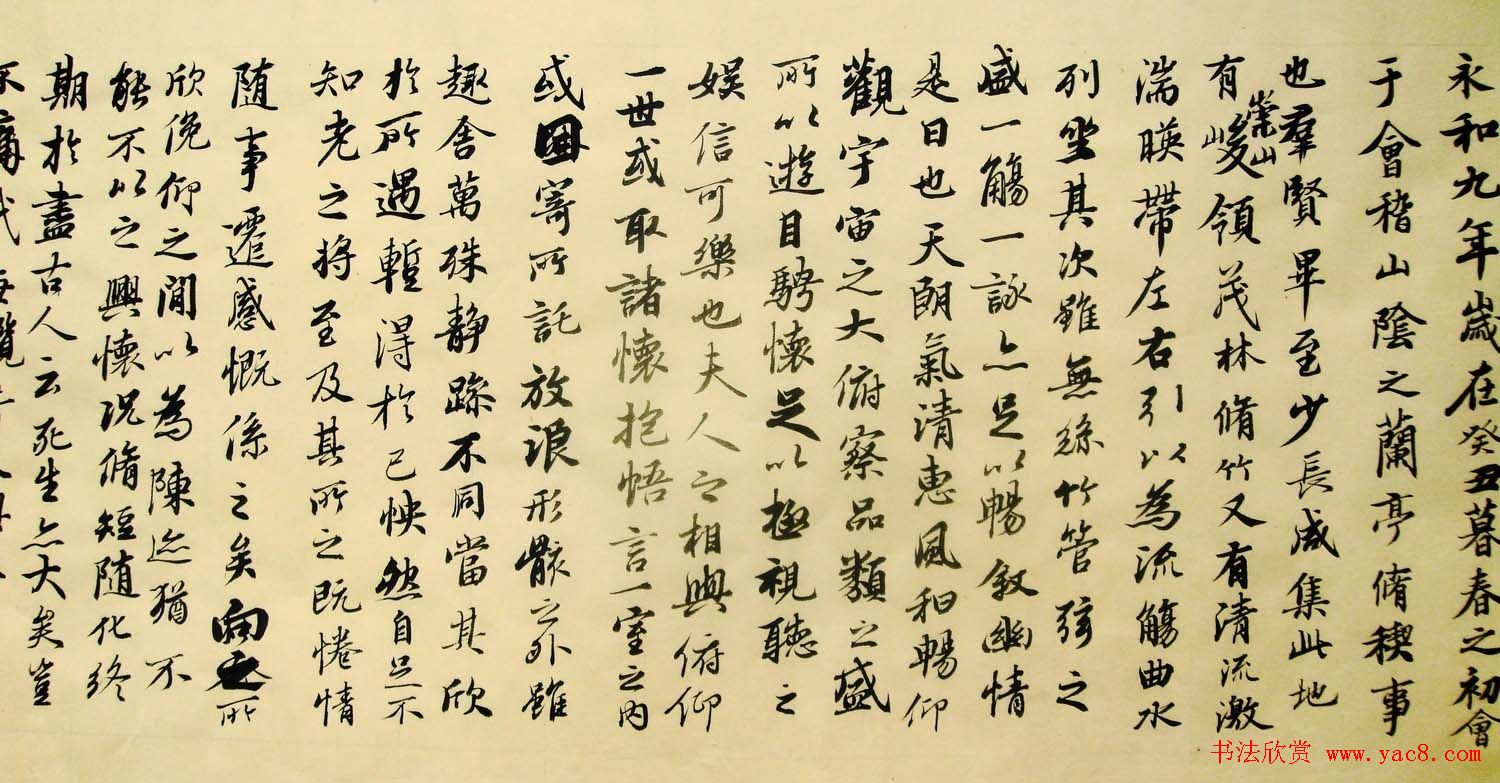 永和九年歲在癸丑暮春之初會
于會稽山陰之蘭亭脩稧事
也羣賢畢至少長咸集此地
有崇山峻領茂林脩竹又有清流激
湍暎帶左右引以為流觴曲水
列坐其次雖無絲竹管弦之
盛一觴一詠亦足以暢敘幽情
是日也天朗氣清惠風和暢仰
觀宇宙之大俯察品類之盛
所以遊目騁懷足以極視聽之
娛信可樂也夫人之相與俯仰
一世或取諸懷抱悟言一室之內
或因寄所託放浪形骸之外雖
趣舍萬殊靜躁不同當其欣
於所遇暫得於己怏然自足不
知老之將至及其所之既惓情
隨事遷感慨係之矣向之所
欣俛仰之間以為陳迹猶不
能不以之興懷況脩短隨化終
期於盡古人云死生亦大矣豈
不痛哉
書法欣赏 www.yac8.com